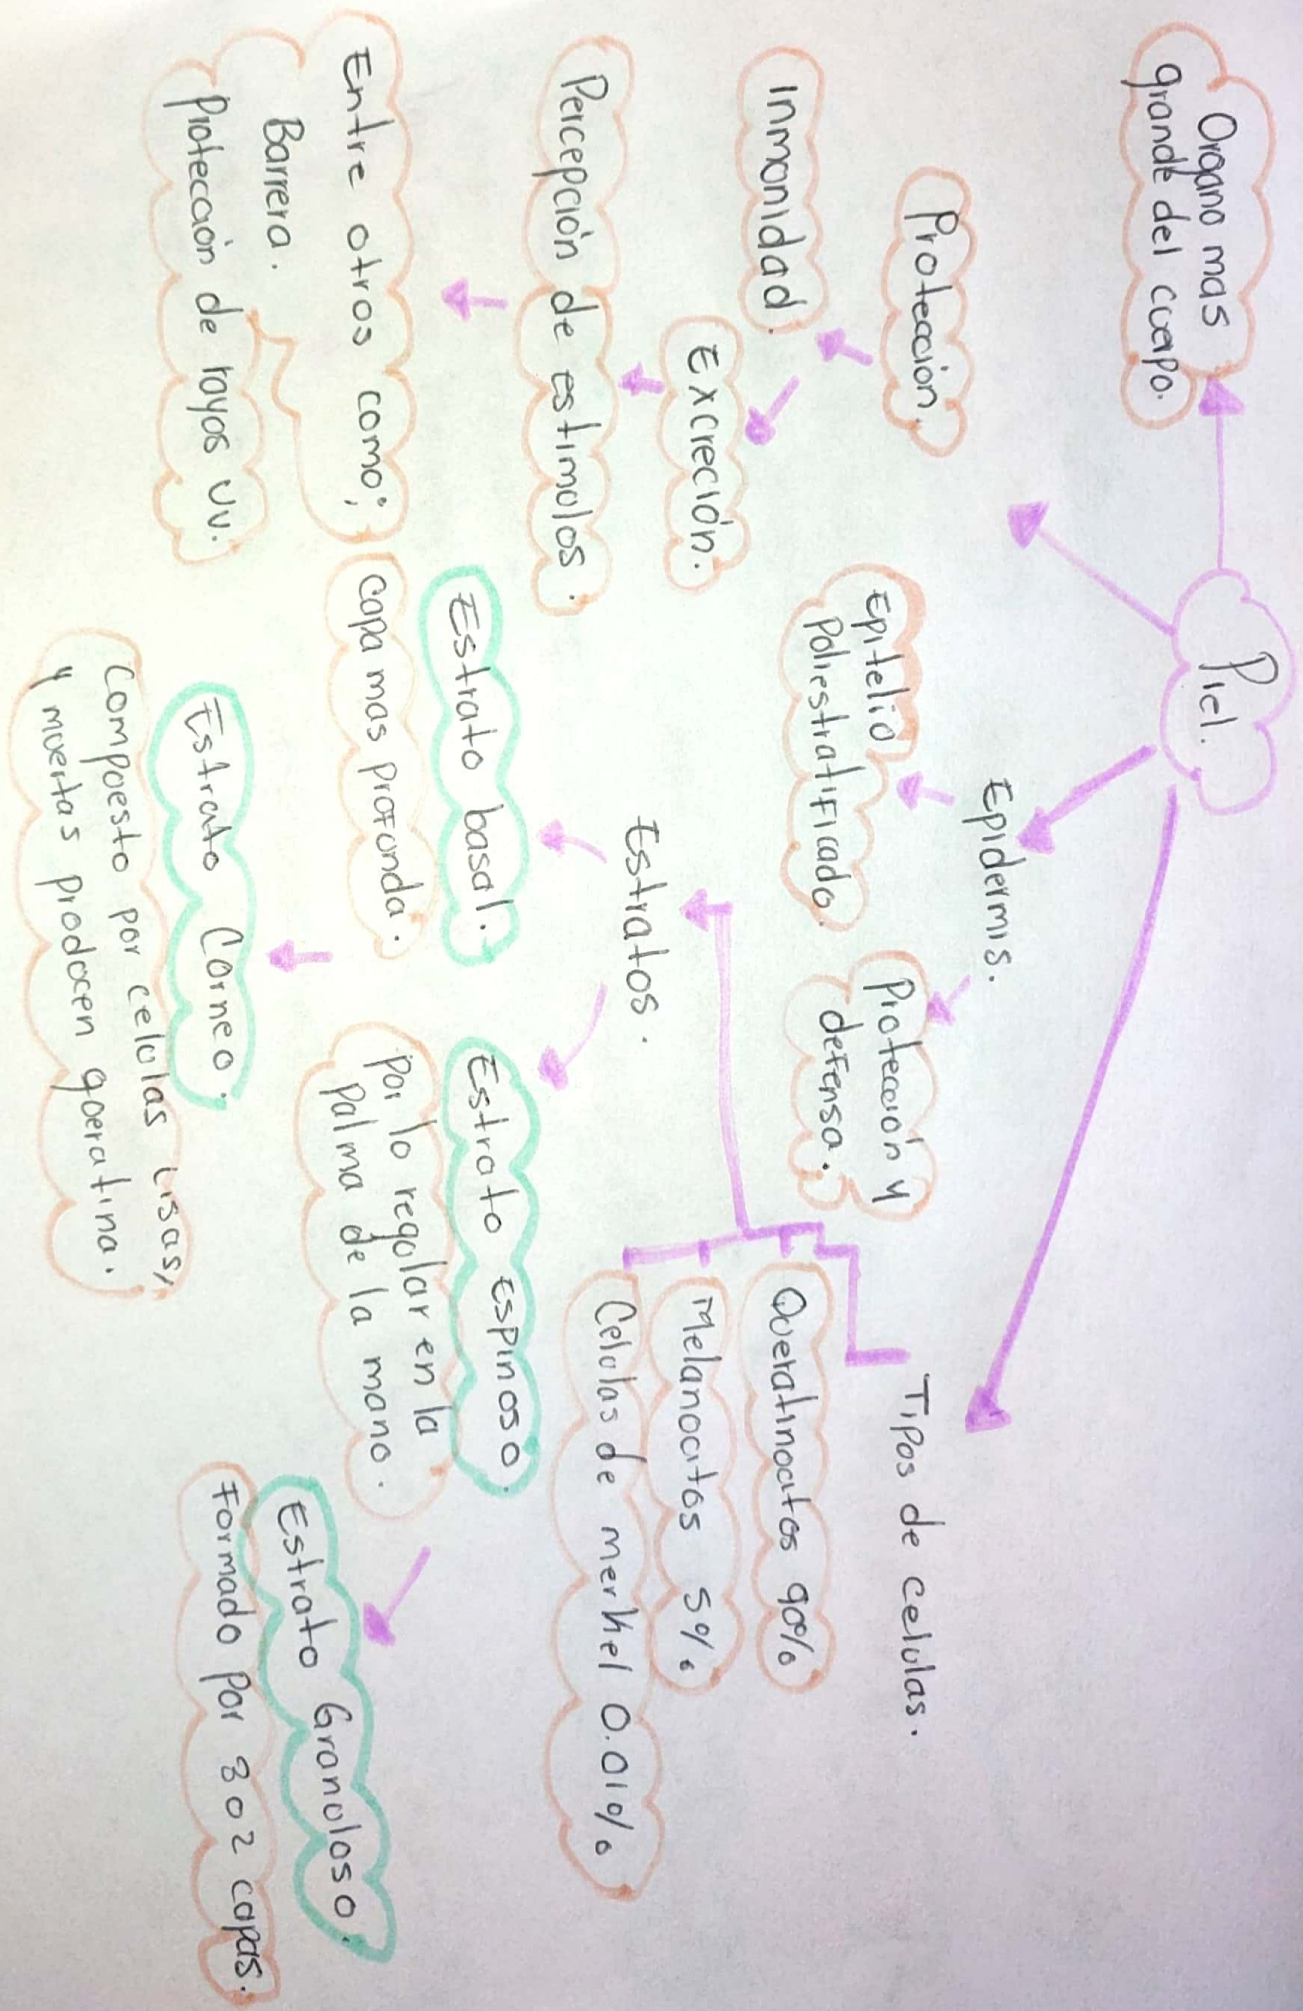 Piel.
Organo mas
grande del cuerpo.
Protección.
Inmonidad.
Excreción.
Percepción de estimulos.
Entre otros como;
Barrera.
Protección de rayos uv.
Epidermis.
Epitelio
Poliestratificado.
Protección y
defensa.
Tipos de celulas.
Queratinocitos 90%
Melanocitos 5%
Celulas de merkel 0.01%
Estratos.
Estrato basal.
capa mas profunda.
Estrato Espinoso.
Por lo regular en la
Palma de la mano.
Estrato Granuloso.
Formado por 3 o 2 capas.
Estrato Corneo.
Compuesto por celulas Lisas,
y muertas producen queratina.